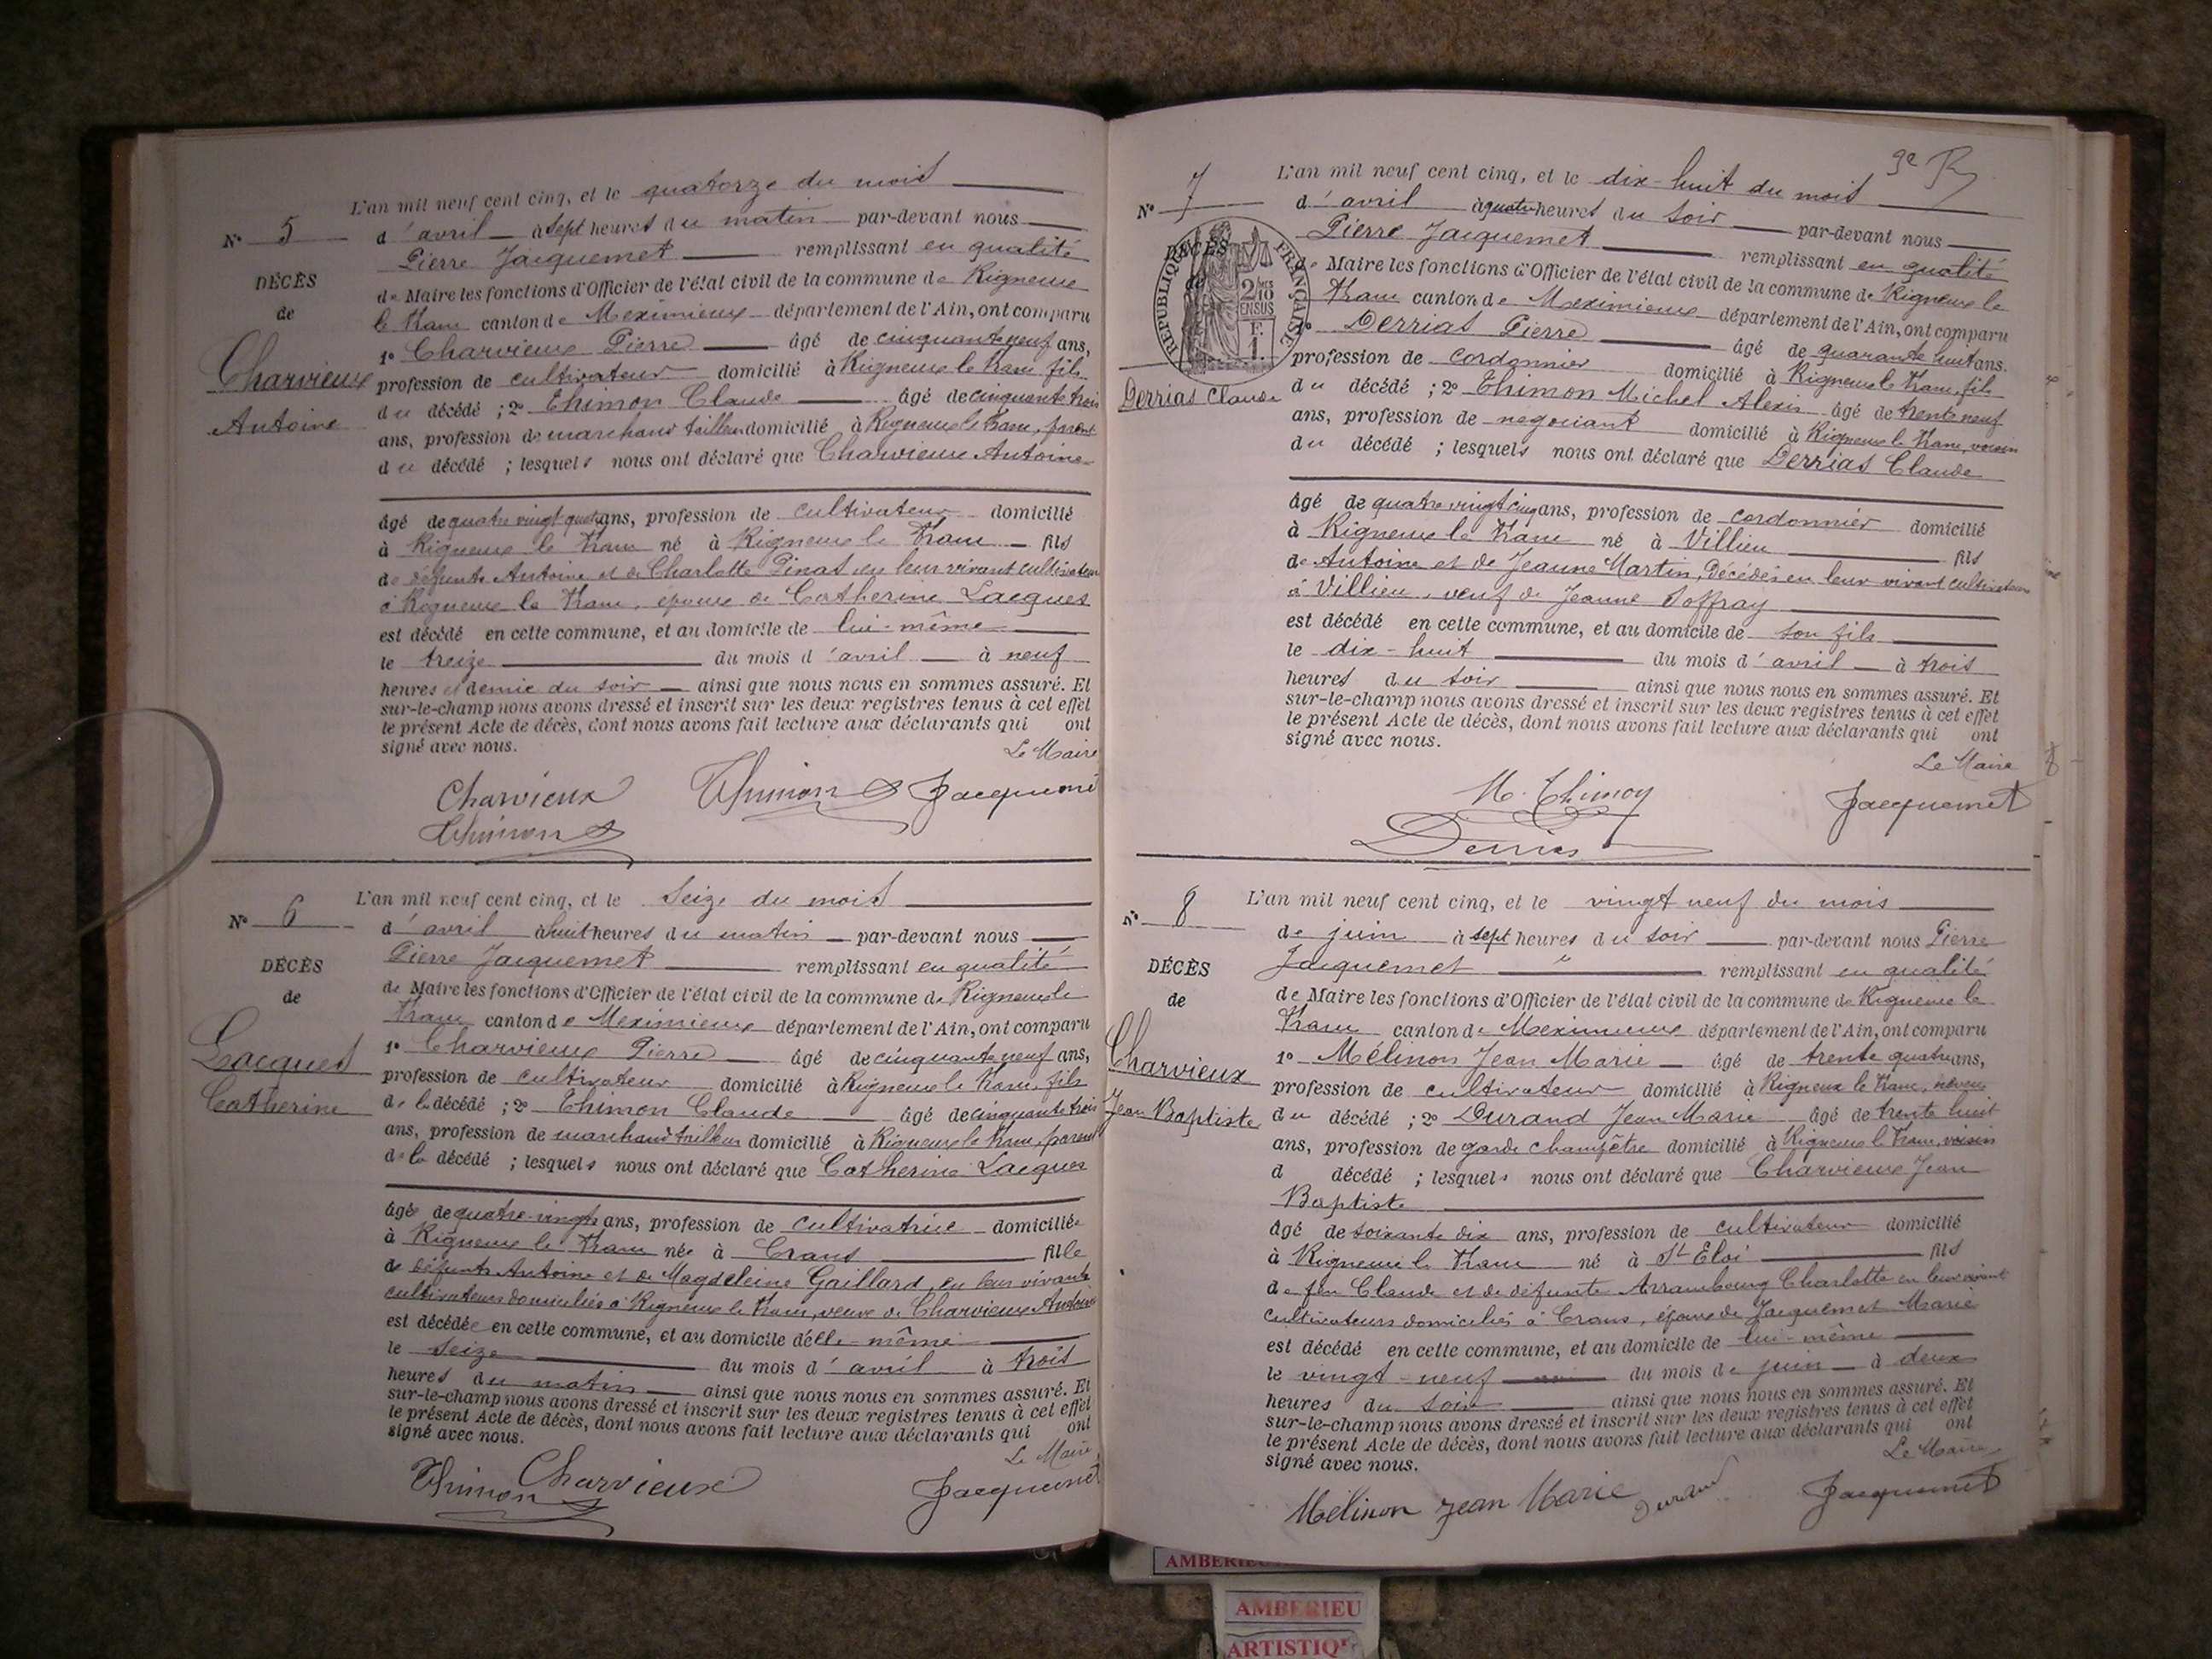 L'an mil neuf cent cinq, et le quatorze du mois
N° 5 d'avril à sept heures du matin par-devant nous
Pierre Jacquemet remplissant en qualité
DÉCÈS
de Maire les fonctions d'Officier de l'état civil de la commune de Rigneux
de
le Franc canton de Meximieux département de l'Ain, ont comparu
1° Charvieux Pierre âgé de cinquante neuf ans,
Charvieux
profession de cultivateur domicilié à Rigneux le Franc, fils
Antoine
du décédé ; 2° Thimon Claude âgé de cinquante trois
ans, profession de marchand tailleur domicilié à Rigneux le Franc, parent
du décédé ; lesquels nous ont déclaré que Charvieux Antoine
âgé de quatre vingt quatre ans, profession de cultivateur domicilié
à Rigneux le Franc né à Rigneux le Franc fils
de défunts Antoine et de Charlotte Pinat en leur vivant cultivateurs
à Rigneux le Franc, époux de Catherine Lacques
est décédé en cette commune, et au domicile de lui-même
le treize du mois d'avril à neuf
heures et demie du soir ainsi que nous nous en sommes assuré. Et
sur-le-champ nous avons dressé et inscrit sur les deux registres tenus à cet effet
le présent Acte de décès, dont nous avons fait lecture aux déclarants qui ont
signé avec nous.
Le Maire
Charvieux Thimon Jacquemet
Thimon
L'an mil neuf cent cinq, et le seize du mois
N° 6 d'avril à huit heures du matin par-devant nous
Pierre Jacquemet remplissant en qualité
DÉCÈS
de Maire les fonctions d'Officier de l'état civil de la commune de Rigneux le
de
Franc canton de Meximieux département de l'Ain, ont comparu
1° Charvieux Pierre âgé de cinquante neuf ans,
Lacques
profession de cultivateur domicilié à Rigneux le Franc, fils
Catherine
de la décédé ; 2° Thimon Claude âgé de cinquante trois
ans, profession de marchand tailleur domicilié à Rigneux le Franc, parent
de la décédé ; lesquels nous ont déclaré que Catherine Lacques
âgée de quatre-vingts ans, profession de cultivatrice domiciliée
à Rigneux le Franc née à Crans fille
de défunts Antoine et de Magdeleine Gaillard, en leur vivants
cultivateurs domiciliés à Rigneux le Franc, veuve de Charvieux Antoine
est décédée en cette commune, et au domicile d'elle-même
le seize du mois d'avril à trois
heures du matin ainsi que nous nous en sommes assuré. Et
sur-le-champ nous avons dressé et inscrit sur les deux registres tenus à cet effet
le présent Acte de décès, dont nous avons fait lecture aux déclarants qui ont
signé avec nous.
Le Maire,
Thimon Charvieux Jacquemet
L'an mil neuf cent cinq, et le dix-huit du mois
N° 7 d'avril à quatre heures du soir par-devant nous
Pierre Jacquemet remplissant en qualité
DÉCÈS
de Maire les fonctions d'Officier de l'état civil de la commune de Rigneux le
de
Franc canton de Meximieux département de l'Ain, ont comparu
RÉPUBLIQUE FRANÇAISE
2/10 EN SUS
F. 1.
1° Derrias Pierre âgé de quarante huit ans.
profession de cordonnier domicilié à Rigneux le Franc, fils
Derrias Claude
du décédé ; 2° Thimon Michel Alexis âgé de trente neuf
ans, profession de negociant domicilié à Rigneux le Franc, voisin
du décédé ; lesquels nous ont déclaré que Derrias Claude
âgé de quatre vingt cinq ans, profession de cordonnier domicilié
à Rigneux le Franc né à Villieu fils
de Antoine et de Jeanne Martin, Décédés en leur vivant cultivateurs
à Villieu, veuf de Jeanne Joffray
est décédé en cette commune, et au domicile de son fils
le dix-huit du mois d'avril à trois
heures du soir ainsi que nous nous en sommes assuré. Et
sur-le-champ nous avons dressé et inscrit sur les deux registres tenus à cet effet
le présent Acte de décès, dont nous avons fait lecture aux déclarants qui ont
signé avec nous.
Le Maire
M. Thimon Jacquemet
Derrias
L'an mil neuf cent cinq, et le vingt neuf du mois
N° 8 de juin à sept heures du soir par-devant nous Pierre
Jacquemet remplissant en qualité
DÉCÈS
de Maire les fonctions d'Officier de l'état civil de la commune de Rigneux le
de
Franc canton de Meximieux département de l'Ain, ont comparu
1° Mélinon Jean Marie âgé de trente quatre ans,
Charvieux
profession de cultivateur domicilié à Rigneux le Franc, neveu
Jean Baptiste
du décédé ; 2° Durand Jean Marie âgé de trente huit
ans, profession de garde champêtre domicilié à Rigneux le Franc, voisin
d décédé ; lesquels nous ont déclaré que Charvieux Jean
Baptiste
âgé de soixante dix ans, profession de cultivateur domicilié
à Rigneux le Franc né à St Eloi fils
de feu Claude et de défunte Arrambourg Charlotte en leur vivant
cultivateurs domiciliés à Crans, époux de Jacquemet Marie
est décédé en cette commune, et au domicile de lui-même
le vingt-neuf du mois de juin à deux
heures du soir ainsi que nous nous en sommes assuré. Et
sur-le-champ nous avons dressé et inscrit sur les deux registres tenus à cet effet
le présent Acte de décès, dont nous avons fait lecture aux déclarants qui ont
signé avec nous.
Le Maire
Mélinon Jean Marie Durand Jacquemet
AMBERIEU
ARTISTIQ